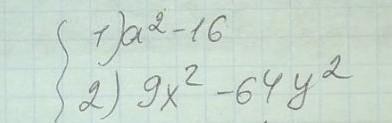 1) a² - 16
2) 9x² - 64y²